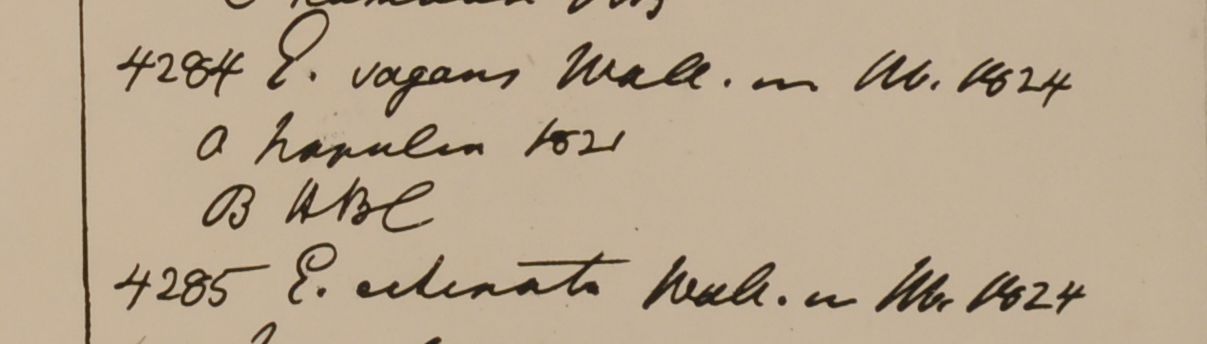 4284 E. vagans Wall. in Hb. 1824
a Napalia 1821
B HBC
4285 E. echinata Wall. in Hb. 1824